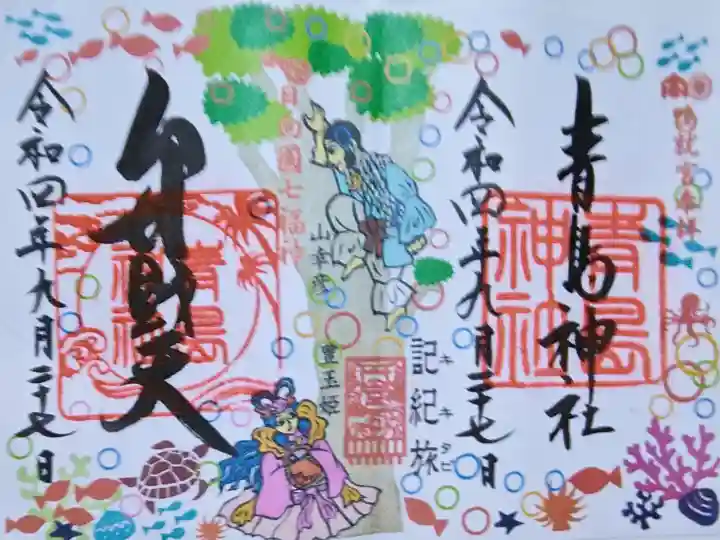 青島神社
青島神社
令和四年九月二十七日
記紀旅
キキタビ
日向國七福神
山幸彦
豊玉姫
弁財天
青島神社
令和四年九月二十七日